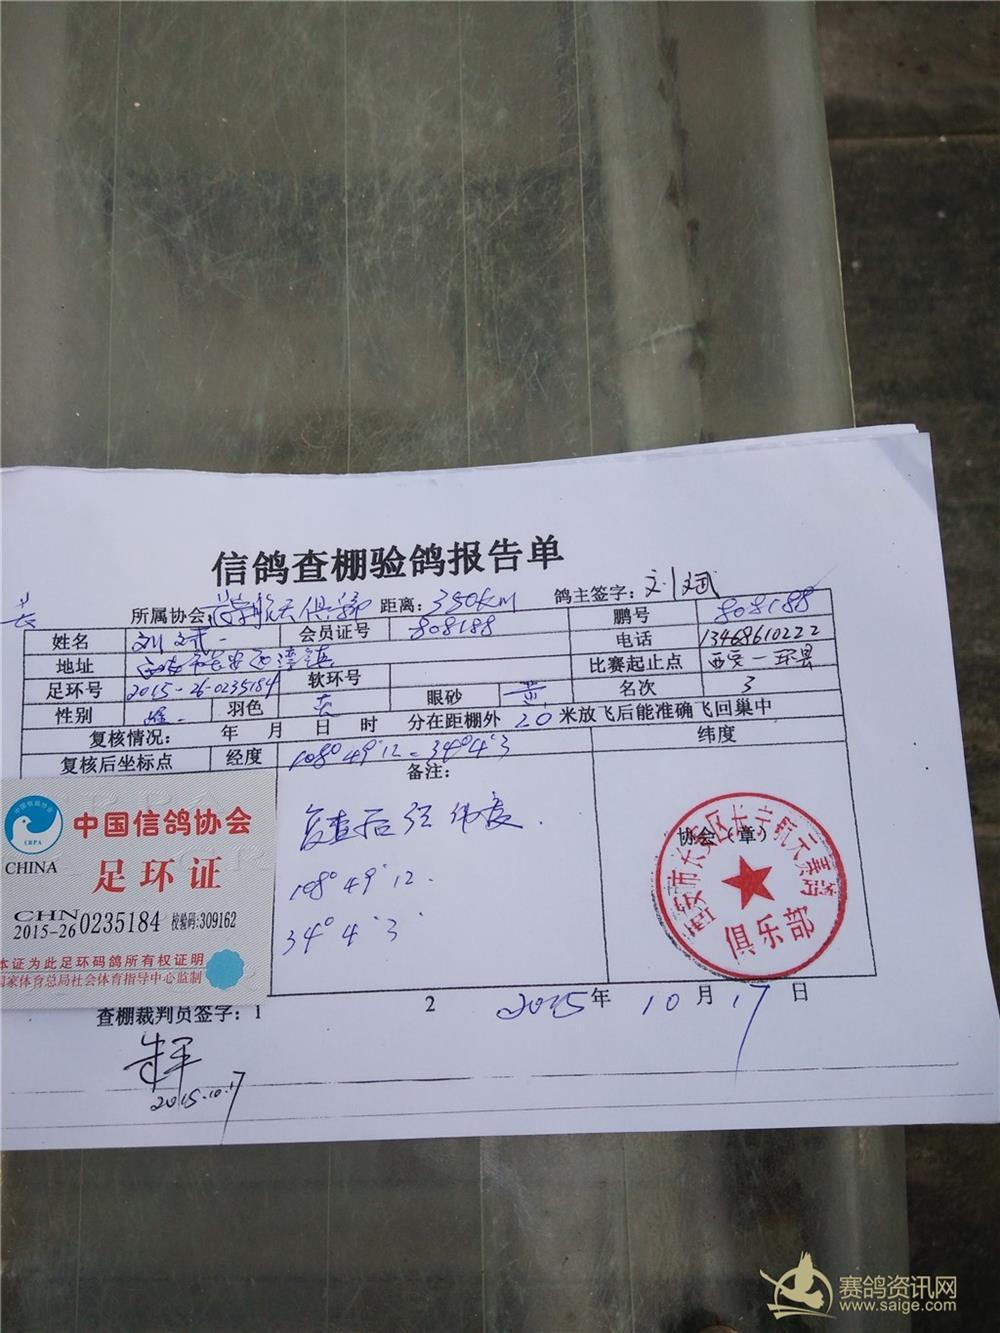 信鸽查棚验鸽报告单
长
所属协会: 长宁航天俱乐部 距离: 350km 鸽主签字: 刘斌
姓名 刘斌 会员证号 808188 鹏号 808188
地址 西安市长安 镇 电话 13468610222
足环号 2015-26-0235184 软环号 比赛起止点 西安一环县
性别 雄 羽色 眼砂 黄 名次 3
复核情况: 年 月 日 时 分在距棚外 20 米放飞后能准确飞回巢中
复核后坐标点 经度 108°49'12 - 34°4'3 纬度
备注:
复查后经纬度.
108°49'12.
34°4'3'
协会（章）
西安市长安区长宁航天赛鸽
俱乐部
中国信鸽协会
CRPA
CHINA
中国信鸽协会
足环证
CHN
2015-26 0235184 校验码:309162
本证为此足环码鸽所有权证明
国家体育总局社会体育指导中心监制
查棚裁判员签字: 1 2 2015年 10月 17日
2015.10.17
赛鸽资讯网
www.saige.com